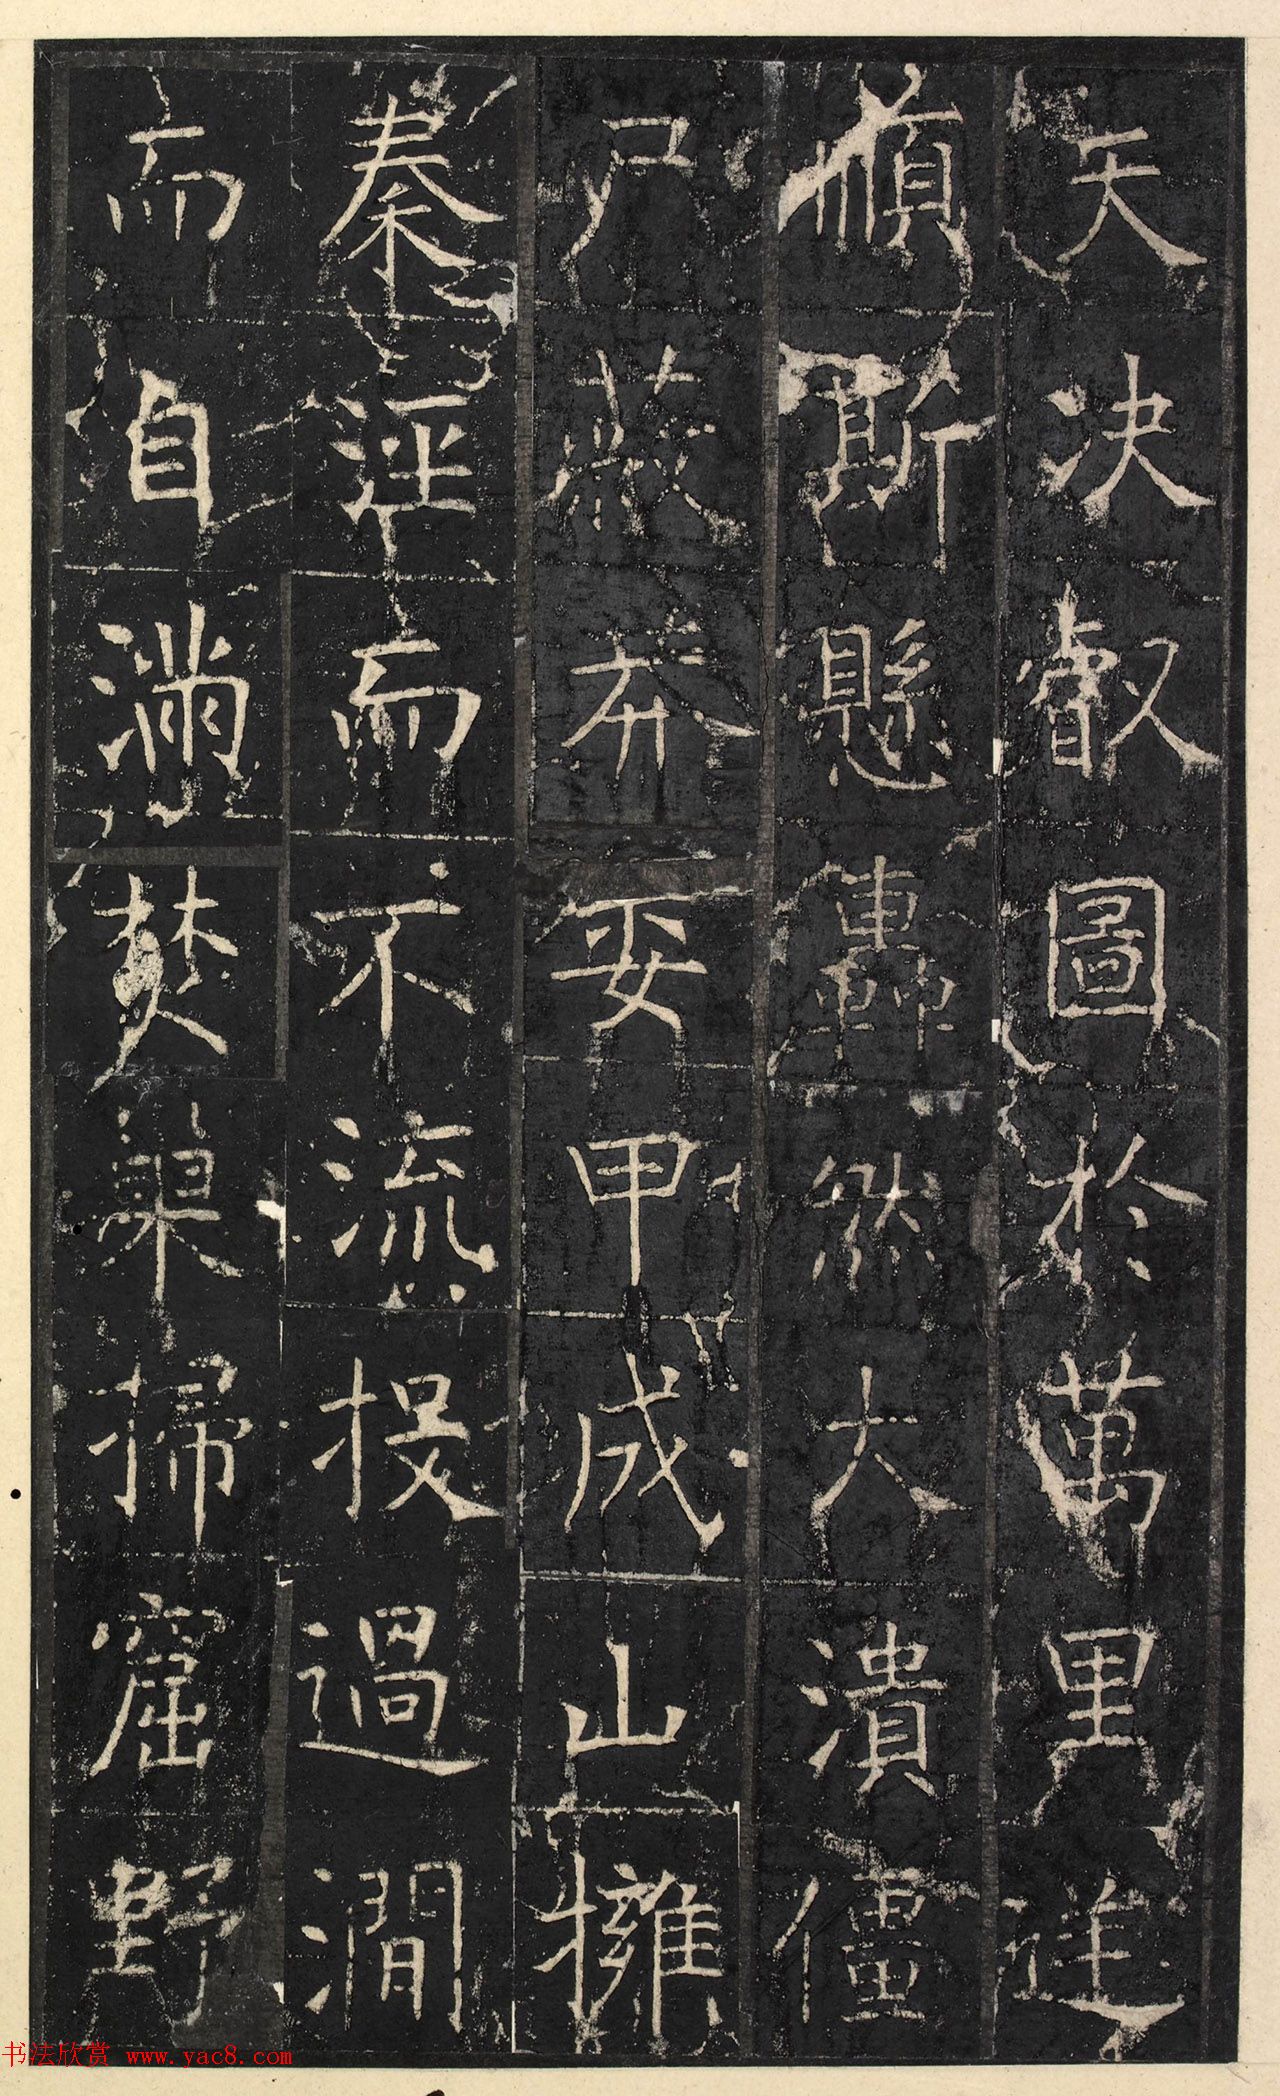 天決叡圖於萬里逆
順斯懸轟然大潰僵
尸蔽莽委甲成山擁
秦涇而不流投過澗
而自滿焚巢掃窟野
书法欣赏 www.yac8.com